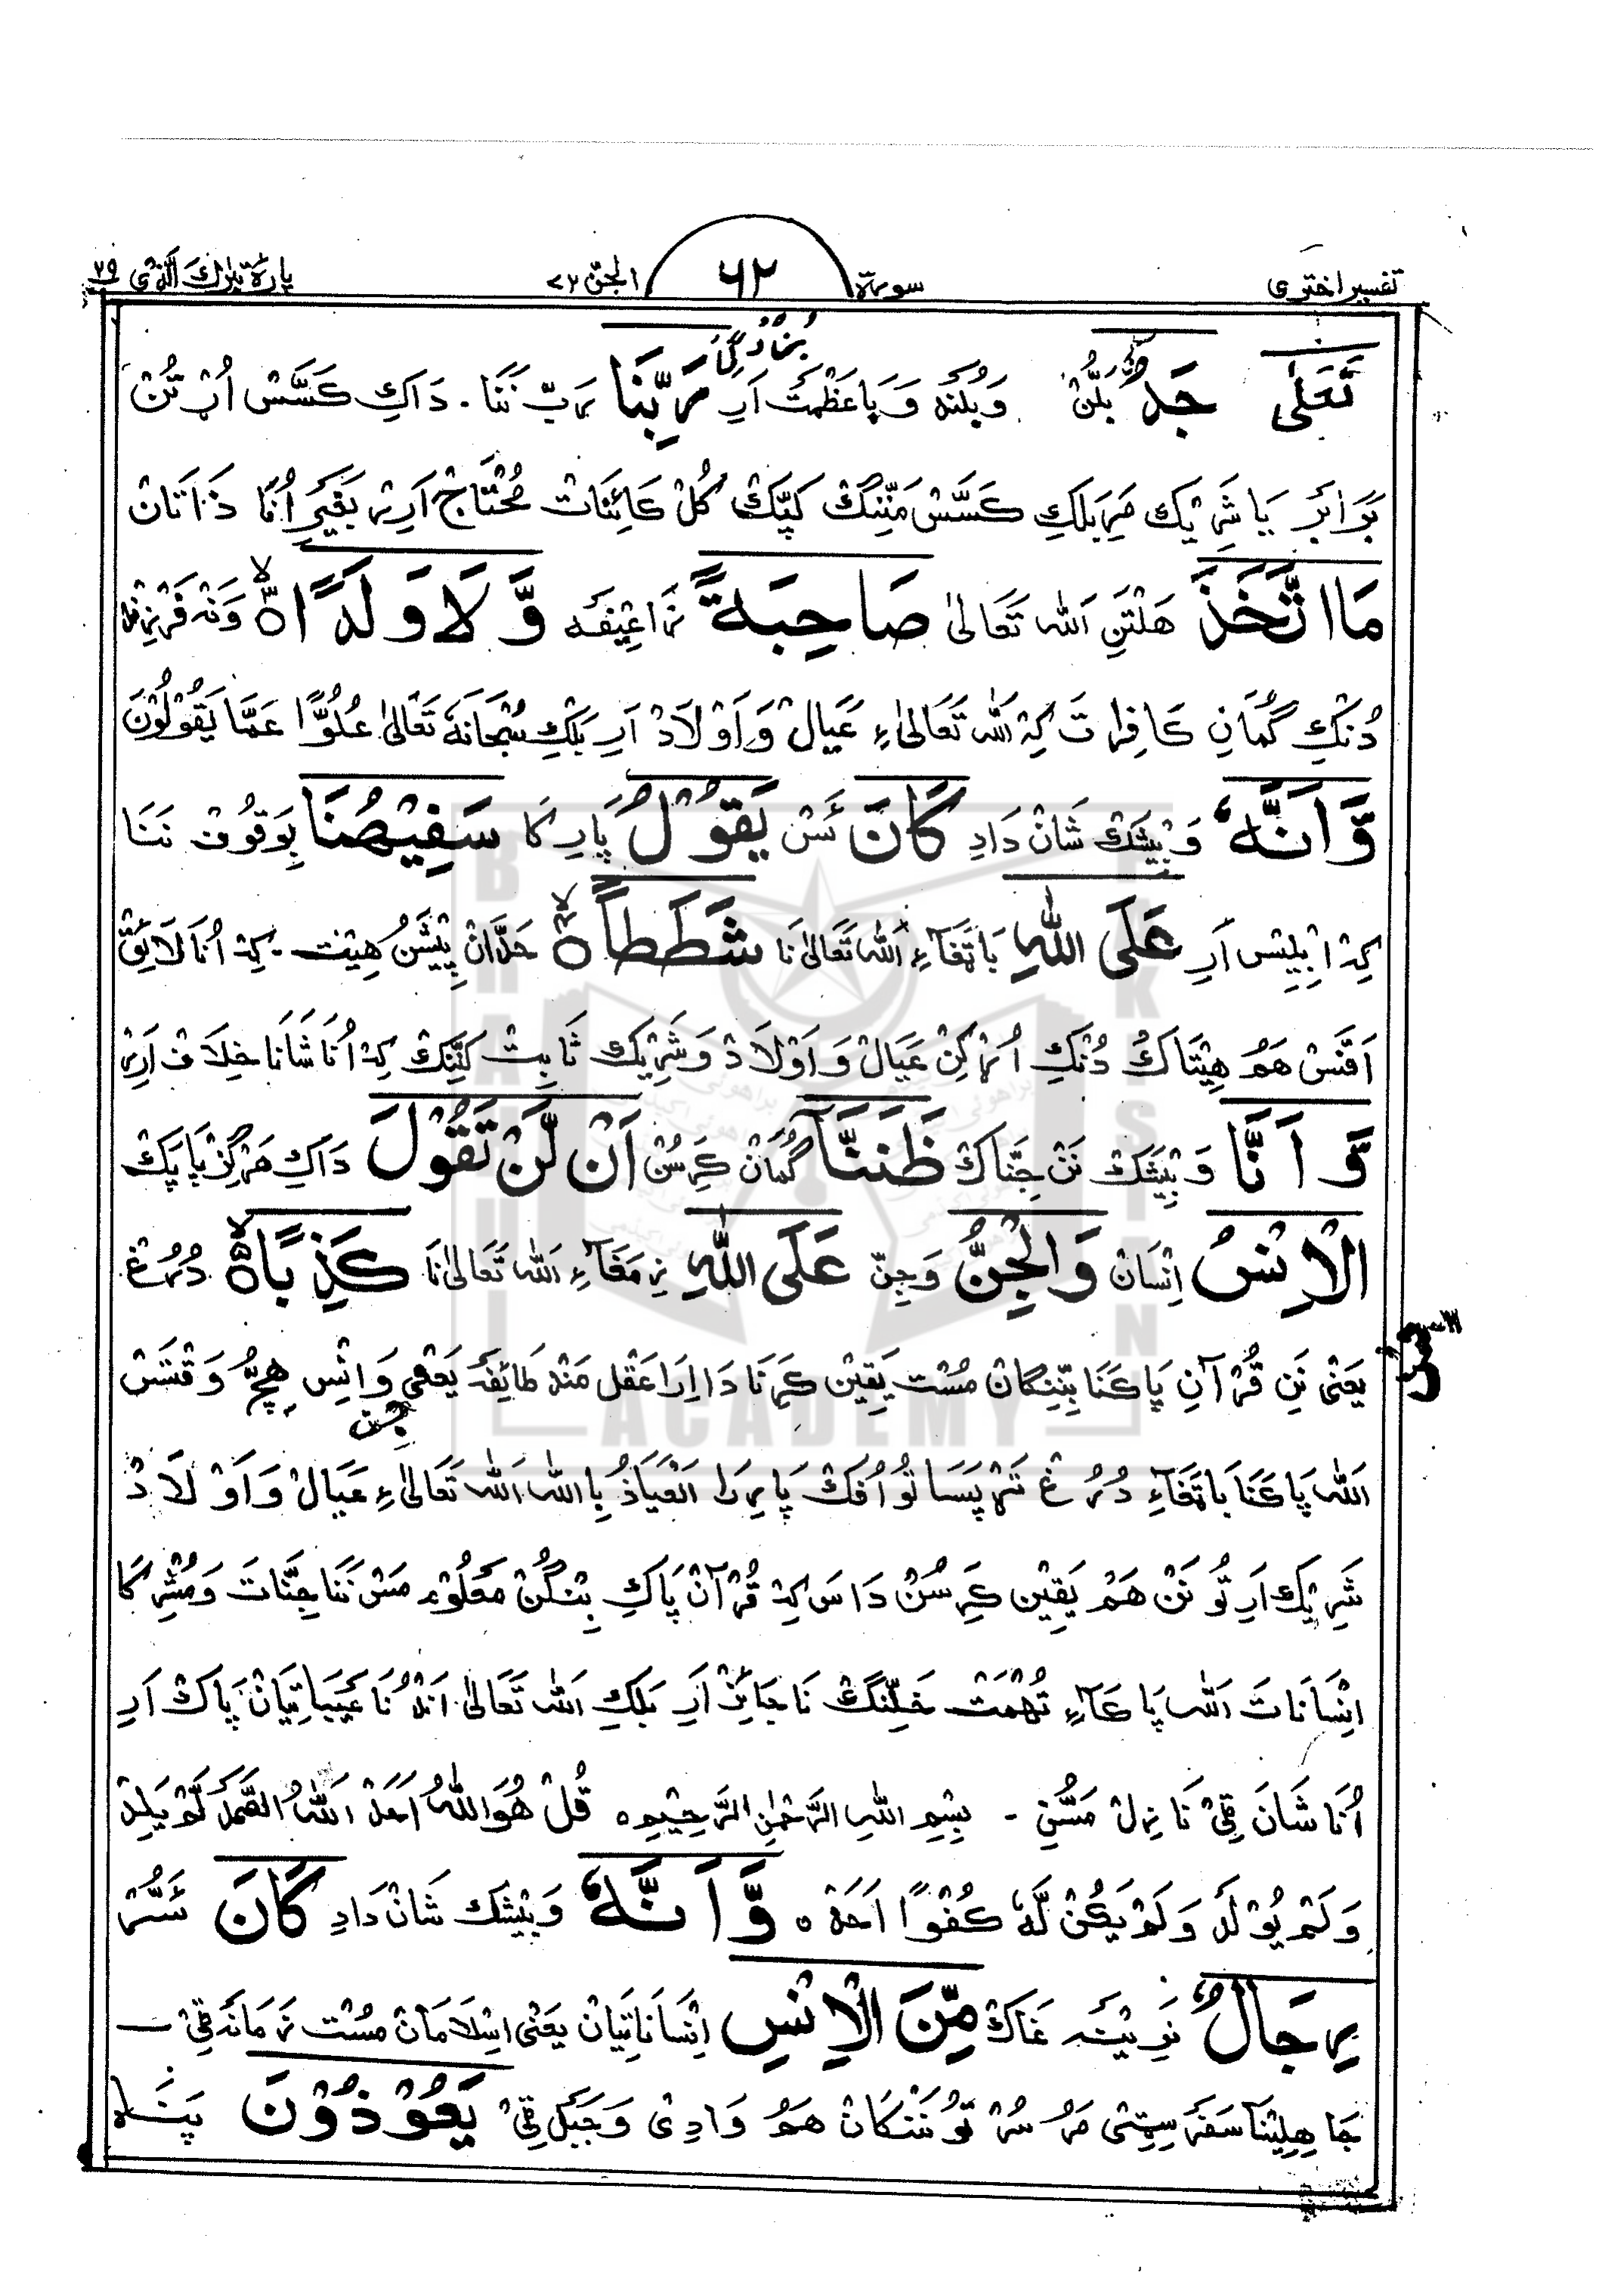 تفسیر اختری سورة ٦٢ الجنّ ٧٢ پارة تبٰرك الّذی ٢٩
بُنَادْگِیْ
تَعٰلٰى جَدُّ بُلَنْ وَبُلَنْد وَبَاعَظْمَتْ اَرِ رَبِّنَا رَبّ نَنَا ۔ دَاکِ کَسَّسْ اُرْتُنْ
بَرَابَرْ یَا شَرِیْك مَرِ بَلکِ کَسَّسْ مَنِّنِگْ کَپَّكْ کُلْ کَائِنَاتْ مُحْتَاجْ اَرِرْ بَغَیْرِ اُنَا ذَاتَانْ
مَا اتَّخَذَ هَلْتَنِ اَللّٰه تَعَالیٰ صَاحِبَةً زَاعِیْفَه وَّلَا وَلَدًا ۝ وَنَه فَرْزِنْد
دُنْکِ گُمَانِ کَافِرَاتَ کِہْ اللّٰه تَعَالیٰءِ عَیَالْ وَاَوْلَادْ اَرِ بَلْکِ سُبْحَانَهٗ تَعَالیٰ عُلُوًّا عَمَّا یَقُوْلُوْنَ
وَّاَنَّهٗ وَبِیْشَكْ شَانْ دَادِ کَانَ ئَسْ یَقُوْلُ پَارِکَا سَفِیْهُنَا بِوَقُوْف نَنَا
کِہْ اِبْلِیْس اَرِ عَلَى اللّٰهِ بَاتَغَاءِ اَللّٰه تَعَالیٰ نَا شَطَطًا ۝ حَدَّانْ پِیْشَنُ هِیْت ۔ کِہْ اُنَا لَائِقْ
اَفَّسْ هَمُ هِیْتَاكْ دُنْکِ اُرْکِنْ عَیَالْ وَاَوْلَادْ وَشَرِیْك ثَابِتْ کَنِّنِگْ کِہْ اُنَا شَانَا خِلَافْ اَرِرْ
وَّاَنَّا وَبِیْشَكْ نَنْ جِنَّاكْ ظَنَنَّا گُمَانْ کَرِسُنْ اَنْ لَّنْ تَقُوْلَ دَاکِ هَرْگِزْ پَاپَكْ
الْاِنْسُ اِنْسَانْ وَالْجِنُّ وَجِنّ عَلَى اللّٰهِ اَللّٰه تَعَالیٰ نَا کَذِبًا ۝ دُرُغْ
یَعْنیٰ نَنِ قُرْآنِ پَاکَنَا بِنِّنْگَانْ مُسْت یَقِیْن کَرِنَا دَا اِرَا عَقْل مَنْد طَائِفَہ یَعْنی وَاِنْس هِچُّ وَقْتَسْ
جِنْ
اَللّٰه پَاکَنَا بَاتَغَاءِ دُرُغْ تَهْرِپَسَا تُو اُفَكْ پَارِرَا اَلْعَیَاذُ بِاللّٰه اَللّٰه تَعَالیٰءِ عَیَالْ وَاَوْلَادْ
شَرِیْك اَرِ تُو نَنْ هَمْ یَقِیْن کَرِسُنْ دَاسَ کِہْ قُرْآنْ پَاکِ بِنْگُنْ مَعْلُوْم مَسْ نَنَا جِنَّاتَ وَمُشْرِکَا
اِنْسَانَاتَ اَللّٰه پَاکَاءِ تُهْمَت خَلِّنِگْ نَاجَائِزْ اَرِ بَلکِ اَللّٰه تَعَالیٰ عَیْبَاتِیَانْ پَاكْ اَرِ
اُنَا شَانَ ٹِیْ نَازِلْ مَسُّنِ ۔ بِسْمِ اللّٰهِ الرَّحْمٰنِ الرَّحِیْمِ ٥ قُلْ هُوَ اللّٰهُ اَحَدْ اَللّٰهُ الصَّمَدْ لَمْ یَلِدْ
وَلَمْ یُوْلَدْ وَلَمْ یَکُنْ لَّهٗ کُفُوًا اَحَدْ ٥ وَّاَنَّهٗ وَبِیْشَك شَانْ دَادِ کَانَ سَسُّرْ
رِجَالٌ نَرِیْنَہ غَاكْ مِّنَ الْاِنْسِ اِنْسَانَاتِیَانْ یَعْنیٰ اِسْلَامَانْ مُسْت زَمَانَہ ٹِیْ
جَاهِلِیْنَا سَفَرَ تُو هَمُ وَادِیْ وَجَبَل ٹِیْ یَعُوْذُوْنَ پَنَاہ